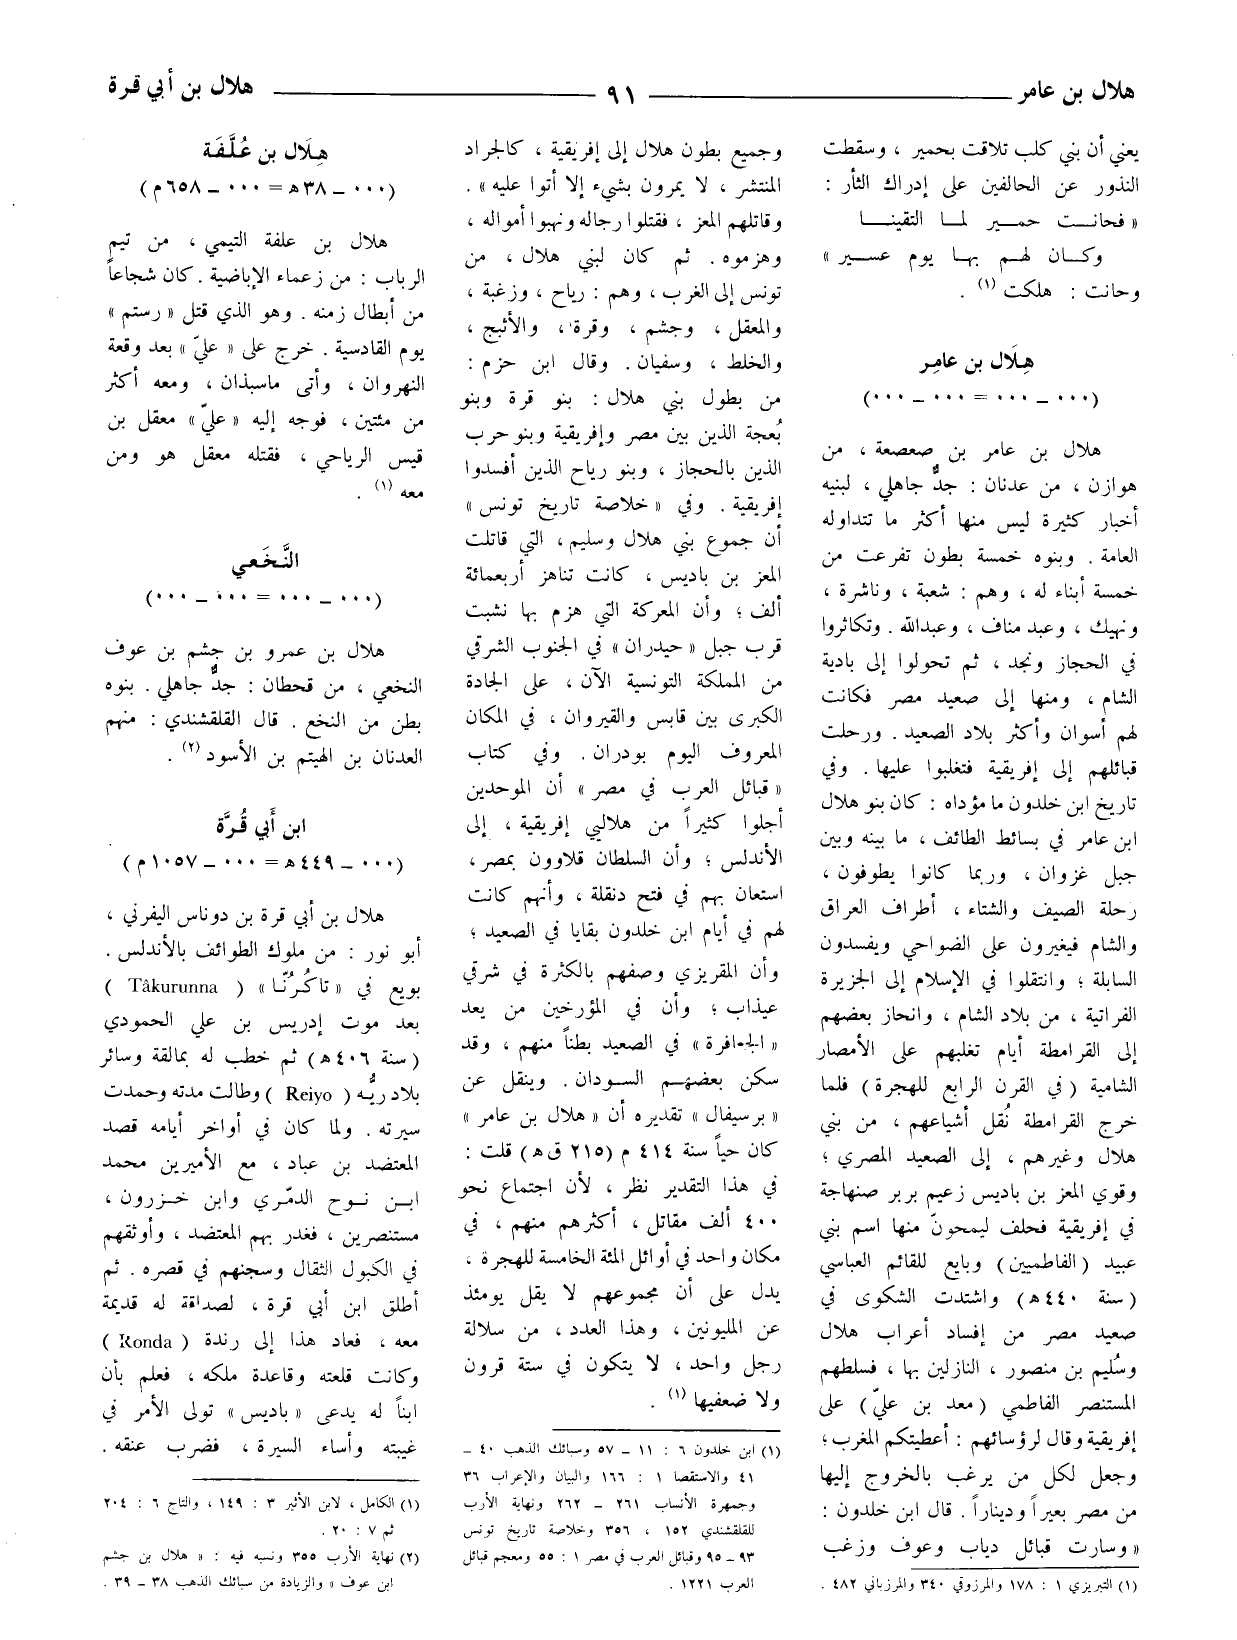 هلال بن عامر ــــــــ ٩١ ــــــــ هلال بن أبي قرة
يعني أن بني كلب تلاقت بحمير ، وسقطت
النذور عن الحالفين على إدراك الثأر :
« فحانت حمير لما التقينا
وكان لهم بها يوم عسير »
وحانت : هلكت (١) .
هِلَال بن عامِر
(٠٠٠ ـ ٠٠٠ = ٠٠٠ ـ ٠٠٠)
هلال بن عامر بن صعصعة ، من
هوازن ، من عدنان : جدٌّ جاهلي ، لبنيه
أخبار كثيرة ليس منها أكثر ما تتداوله
العامة . وبنوه خمسة بطون تفرعت من
خمسة أبناء له ، وهم : شعبة ، وناشرة ،
ونهيك ، وعبد مناف ، وعبدالله . وتكاثروا
في الحجاز ونجد ، ثم تحولوا إلى بادية
الشام ، ومنها إلى صعيد مصر فكانت
لهم أسوان وأكثر بلاد الصعيد . ورحلت
قبائلهم إلى إفريقية فتغلبوا عليها . وفي
تاريخ ابن خلدون ما مؤداه : كان بنو هلال
ابن عامر في بسائط الطائف ، ما بينه وبين
جبل غزوان ، وربما كانوا يطوفون ،
رحلة الصيف والشتاء ، أطراف العراق
والشام فيغيرون على الضواحي ويفسدون
السابلة ؛ وانتقلوا في الإسلام إلى الجزيرة
الفراتية ، من بلاد الشام ، وانحاز بعضهم
إلى القرامطة أيام تغلبهم على الأمصار
الشامية (في القرن الرابع للهجرة) فلما
خرج القرامطة نُقل أشياعهم ، من بني
هلال وغيرهم ، إلى الصعيد المصري ؛
وقوي المعز بن باديس زعيم بربر صنهاجة
في إفريقية فحلف ليمحونّ منها اسم بني
عبيد (الفاطميين) وبايع للقائم العباسي
(سنة ٤٤٠ه) واشتدت الشكوى في
صعيد مصر من إفساد أعراب هلال
وسُليم بن منصور ، النازلين بها ، فسلطهم
المستنصر الفاطمي (معد بن عليّ) على
إفريقية وقال لرؤسائهم : أعطيتكم المغرب ؛
وجعل لكل من يرغب بالخروج إليها
من مصر بعيراً وديناراً . قال ابن خلدون :
« وسارت قبائل دياب وعوف وزغب
(١) التبريزي ١ : ١٧٨ والمرزوقي ٣٤٠ والمرزباني ٤٨٢ .
وجميع بطون هلال إلى إفريقية ، كالجراد
المنتشر ، لا يمرون بشيء إلا أتوا عليه » .
وقاتلهم المعز ، فقتلوا رجاله ونهبوا أمواله ،
وهزموه . ثم كان لبني هلال ، من
تونس إلى الغرب ، وهم : رياح ، وزغبة ،
والمعقل ، وجشم ، وقرة ، والأثبج ،
والخلط ، وسفيان . وقال ابن حزم :
من بطول بني هلال : بنو قرة وبنو
بُعجة الذين بين مصر وإفريقية وبنو حرب
الذين بالحجاز ، وبنو رياح الذين أفسدوا
إفريقية . وفي « خلاصة تاريخ تونس »
أن جموع بني هلال وسليم ، التي قاتلت
المعز بن باديس ، كانت تناهز أربعمائة
ألف ؛ وأن المعركة التي هزم بها نشبت
قرب جبل « حيدران » في الجنوب الشرقي
من المملكة التونسية الآن ، على الجادة
الكبرى بين قابس والقيروان ، في المكان
المعروف اليوم بودران . وفي كتاب
« قبائل العرب في مصر » أن الموحدين
أجلوا كثيراً من هلاليي إفريقية ، إلى
الأندلس ؛ وأن السلطان قلاوون بمصر ،
استعان بهم في فتح دنقلة ، وأنهم كانت
لهم في أيام ابن خلدون بقايا في الصعيد ؛
وأن المقريزي وصفهم بالكثرة في شرقي
عيذاب ؛ وأن في المؤرخين من يعد
« الجمافرة » في الصعيد بطناً منهم ، وقد
سكن بعضهم السودان . وينقل عن
« برسيفال » تقديره أن « هلال بن عامر »
كان حياً سنة ٤١٤ م (٢١٥ ق ه) قلت :
في هذا التقدير نظر ، لأن اجتماع نحو
٤٠٠ ألف مقاتل ، أكثرهم منهم ، في
مكان واحد في أوائل المئة الخامسة للهجرة ،
يدل على أن مجموعهم لا يقل يومئذ
عن المليونين ، وهذا العدد ، من سلالة
رجل واحد ، لا يتكون في ستة قرون
ولا ضعفيها (١) .
(١) ابن خلدون ٦ : ١١ ـ ٥٧ وسبائك الذهب ٤٠ ـ
٤١ والاستقصا ١ : ١٦٦ والبيان والإعراب ٣٦
وجمهرة الأنساب ٢٦١ ـ ٢٦٢ ونهاية الأرب
للقلقشندي ١٥٢ ، ٣٥٦ وخلاصة تاريخ تونس
٩٣ ـ ٩٥ وقبائل العرب في مصر ١ : ٥٥ ومعجم قبائل
العرب ١٢٢١ .
هِلَال بن عُلَّفَة
(٠٠٠ ـ ٣٨ه = ٠٠٠ ـ ٦٥٨م)
هلال بن علفة التيمي ، من تيم
الرباب : من زعماء الإباضية . كان شجاعاً
من أبطال زمنه . وهو الذي قتل « رستم »
يوم القادسية . خرج على « عليّ » بعد وقعة
النهروان ، وأتى ماسبذان ، ومعه أكثر
من مئتين ، فوجه إليه « عليّ » معقل بن
قيس الرياحي ، فقتله معقل هو ومن
معه (١) .
النَّخَعي
(٠٠٠ ـ ٠٠٠ = ٠٠٠ ـ ٠٠٠)
هلال بن عمرو بن جشم بن عوف
النخعي ، من قحطان : جدٌّ جاهلي . بنوه
بطن من النخع . قال القلقشندي : منهم
العدنان بن الهيتم بن الأسود (٢) .
ابن أَبي قُرَّة
(٠٠٠ ـ ٤٤٩ه = ٠٠٠ ـ ١٠٥٧م)
هلال بن أبي قرة بن دوناس اليفرني ،
أبو نور : من ملوك الطوائف بالأندلس .
بويع في « تاكُرُنّا » ( Tâkurunna )
بعد موت إدريس بن علي الحمودي
(سنة ٤٠٦ه) ثم خطب له بمالقة وسائر
بلاد ريُّه ( Reiyo ) وطالت مدته وحمدت
سيرته . ولما كان في أواخر أيامه قصد
المعتضد بن عباد ، مع الأميرين محمد
ابن نوح الدمّري وابن خزرون ،
مستنصرين ، فغدر بهم المعتضد ، وأوثقهم
في الكبول الثقال وسجنهم في قصره . ثم
أطلق ابن أبي قرة ، لصداقة له قديمة
معه ، فعاد هذا إلى رندة ( Ronda )
وكانت قلعته وقاعدة ملكه ، فعلم بأن
ابناً له يدعى « باديس » تولى الأمر في
غيبته وأساء السيرة ، فضرب عنقه .
(١) الكامل ، لابن الأثير ٣ : ١٤٩ ، والتاج ٦ : ٢٠٤
ثم ٧ : ٢٠ .
(٢) نهاية الأرب ٣٥٥ ونسبه فيه : « هلال بن جشم
ابن عوف » والزيادة من سبائك الذهب ٣٨ ـ ٣٩ .